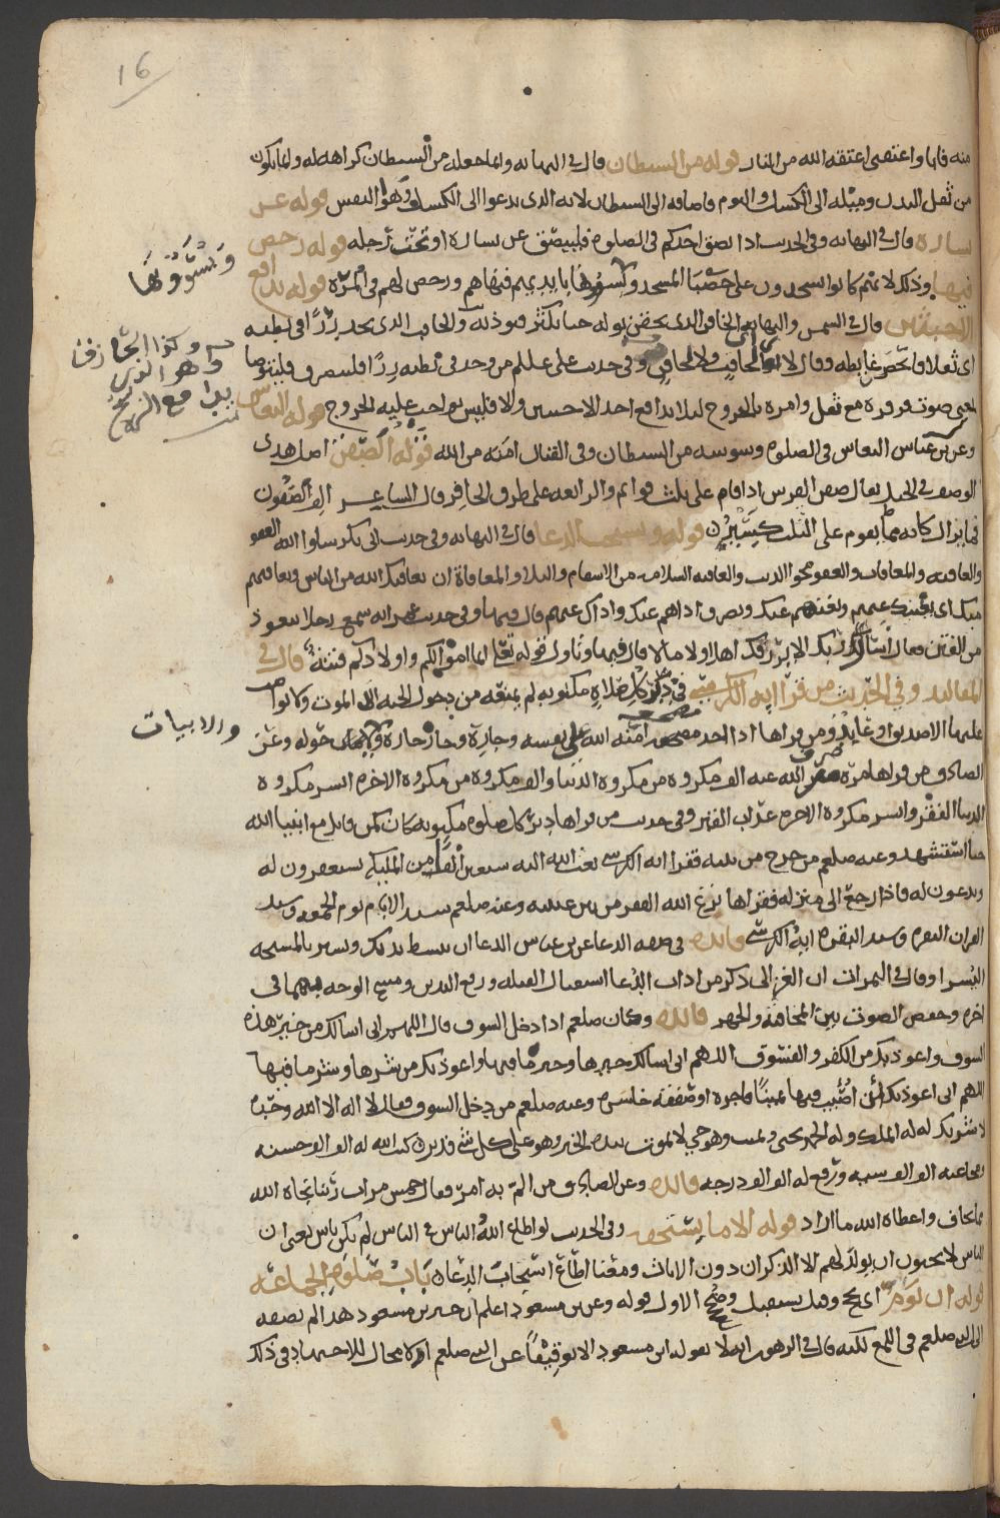 16
منه فانها واعتقني اعتقه الله من النار قوله من الشيطان قال في النهايه وانما جعله من الشيطان كراهه له وانما يكون
من ثقل البدن وميله الى الكسل والنوم فاضافه الى الشيطان لانه الذي يدعوا الى الكسل وهوا النفس قوله عن
يساره قال في النهايه وفي الحديث اذا بصق احدكم في الصلوه فليبصق عن يساره او تحت رجله قوله رخص
فيها وذلك لانهم كانوا يسجدون على حصبا المسجد ويسوونها بايديهم فنهاهم ورخص لهم في المرة قوله يدافع
ويسوونها
الاخبثين قال في الشمس والنهايه الحاقن الذي يحقن بوله حتا يكثر فيوذيه والحاقب الذي يجد رزا في بطنه
اي ثقلا فاتحصر غايطه وقال لا لحاقب ولا لحاقن وفي حديث علي عليلم من وجد في بطنه رزا فلينصرف وليتوضا
وكذا الحازق
وهو الذي
يدافع الريح
يعني صوت قرقره مع ثقل وامره بالخروج ليلا يدافع احد الاخبثين والا فليس بواجب عليه الخروج قوله النعاس
وعن بن عباس النعاس في الصلوه وسوسه من الشيطان وفي القتال امنه من الله قوله الصفن اصل هدى
الوصف في الخيل يقال صفن الفرس اذا قام على ثلث قوايم والرابعه على طرف الحافر قال الشاعر الف الصفون
فما يزال كانه مما يقوم على الثلث كسير قوله ويستحب الدعا قال في النهايه وفي حديث ابي بكر سلوا الله العفو
والعافيه والمعافاه والعفو محوا الذنب والعافيه السلامه من الاسقام والبلا والمعافاة ان يعافيك الله من الناس ويعافيهم
منك اي يغنيك عنهم ويغنيهم عنك ويصرف اذاهم عنك واذاك عنهم قال فيها وفي حديث عمر انه سمع رجلا يتعوذ
من الفتن فقال اتسال ربك الا يرزقك اهلا ولا مالا قال فيها وتاول قوله تعلى انما اموالكم واولادكم فتنه قال في
المقاليد وفي الحديث من قرا ايه الكرسي في دبر كل صلاة مكتوبه لم يمنعه من دخول الجنه الا الموت ولا يواضب
عليها الا صديق او عابد ومن قراها اذا اخذ مضجعه آمنه الله على نفسه وجاره وجار جاره والابيات حوله وعن
والابيات
الصادق من قراها مرة صرف الله عنه الف مكروه من مكروه الدنيا والف مكروه من مكروه الاخره ايسر مكروه
الدنيا الفقر وايسر مكروه الاخره عذاب القبر وفي حديث من قراها دبر كل صلوه مكتوبه كان كمن قاتل مع انبيا الله
حتا استشهد وعنه صلعم من خرج من بيته فقرا ايه الكرسي بعث الله اليه سبعين الفا من المليكه يستغفرون له
ويدعون له فاذا رجع الى منزله فقراها نزع الله الفقر من بين عينيه وعنه صلعم سيد الايام يوم الجمعه وسيد
القران البقره وسيد البقره ايه الكرسي فايده في صفه الدعا عن بن عباس الدعا ان يبسط يديك وتشير بالمسبحه
اليسرا وقال في الثمرات ان الغزالي ذكر من اداب الدعا استقبال القبله ورفع اليدين ومسح الوجه بهما في
اخره وخفض الصوت بين المخافته والجهر فايده وكان صلعم اذا دخل السوق قال اللهم اني اسالك من خير هذه
السوق واعوذ بك من الكفر والفسوق اللهم اني اسالك خيرها وخير ما فيها واعوذ بك من شرها وشر ما فيها
اللهم اني اعوذ بك ان اصيب فيها يمينًا فاجره او صفقه خاسره وعنه صلعم من دخل السوق فقال لا اله الا الله وحده
لا شريك له له الملك وله الحمد يحيي ويميت وهو حي لا يموت بيده الخير وهو على كل شي قدير كتب الله له الف الف حسنه
ومحا عنه الف الف سيه ورفع له الف الف درجه فايده وعن الصادق من الم به امر فقال خمس مرات ربنا نجاه الله
مما يخاف واعطاه الله ما اراد قوله الا ما يستحق وفي الحديث لو اطاع الله الناس في الناس لم يكن ناس يعني ان
الناس لا يحبون ان يولد لهم الا الذكران دون الاناث ومعنا اطاع استجاب الدعا باب صلوة الجماعه
قوله ان نوى اي يح وقيل يستقبل وضح الاول قوله وعن بن مسعود اعلم ان خبر بن مسعود هذا لم يضفه
الى النبي صلعم في اللمع لكنه قال في الزهور انه لا يقوله ابن مسعود الا توقيفًا عن النبي صلعم اذ لا مجال للاجتهاد في ذلك